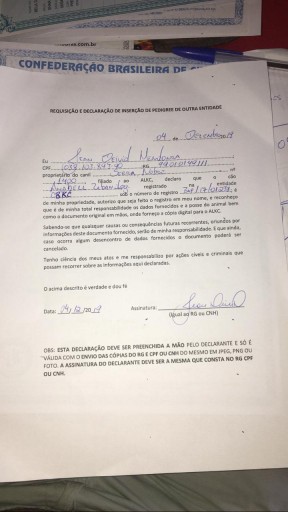 CONFEDERAÇÃO BRASILEIRA DE
REQUISIÇÃO E DECLARAÇÃO DE INSERÇÃO DE PEDIGREE DE OUTRA ENTIDADE
04 de Dezembro
Eu
CPF RG
proprietário do canil nº
filiado ao ALKC, declaro que o cão
registrado na entidade
sob o número de registro
de minha propriedade, autorizo que seja feito o registro em meu nome, e reconheço
que é de minha total responsabilidade os dados fornecidos e a posse do animal bem
como o documento original em mãos, onde forneço a cópia digital para o ALKC.
Sabendo-se que quaisquer causas ou consequências futuras recorrentes, oriundos por
informações deste documento fornecido, serão de minha responsabilidade. E que ainda,
caso ocorra algum desencontro de dados fornecidos o documento poderá ser
cancelado.
Tenho ciência dos meus atos e me responsabilizo por ações cíveis e criminais que
possam recorrer sobre as informações aqui declaradas.
O acima descrito é verdade e dou fé
Data: Assinatura:
(Igual ao RG ou CNH)
OBS: ESTA DECLARAÇÃO DEVE SER PREENCHIDA A MÃO PELO DECLARANTE E SÓ É
VÁLIDA COM O ENVIO DAS CÓPIAS DO RG E CPF OU CNH DO MESMO EM JPEG, PNG OU
FOTO. A ASSINATURA DO DECLARANTE DEVE SER A MESMA QUE CONSTA NO RG CPF
OU CNH.